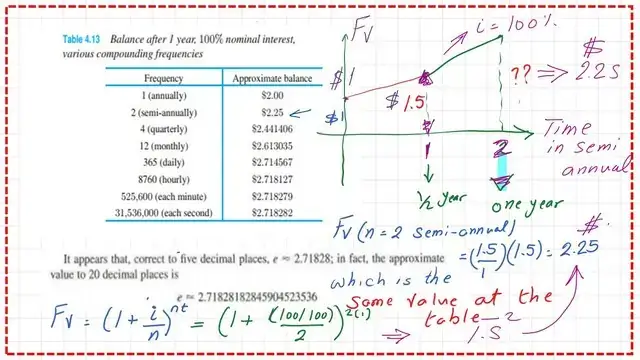 Table 4.13 Balance after 1 year, 100% nominal interest,
various compounding frequencies
Frequency Approximate balance
1 (annually) $2.00
2 (semi-annually) $2.25
4 (quarterly) $2.441406
12 (monthly) $2.613035
365 (daily) $2.714567
8760 (hourly) $2.718127
525,600 (each minute) $2.718279
31,536,000 (each second) $2.718282
It appears that, correct to five decimal places, e ≈ 2.71828; in fact, the approximate
value to 20 decimal places is
e ≈ 2.71828182845904523536
FV
i = 100%
$1
$1
$ 1.5
?? ⇒ $ 2.25
Time
in semi
annual
1
2
1/2 year
one year
FV (n = 2 semi-annual)
= (1.5/1)(1.5) = 2.25 $
which is the
same value at the
table
FV = (1 + i/n)^nt = (1 + (100/100)/2)^2(1)
⇒ 1.5^2